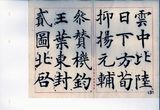 雲中比陸
日下方荀
抑揚元輔
參贊機鈞
王葉東封
貳圖北启